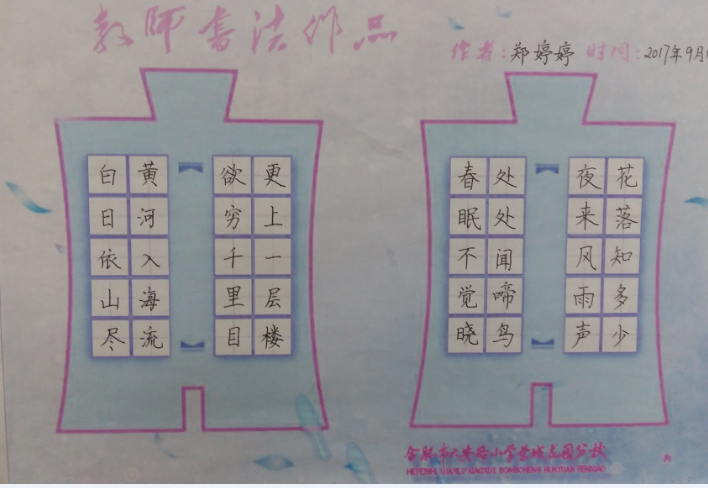 教师书法作品
作者:郑婷婷 时间:2017年9月
白日依山尽
黄河入海流
欲穷千里目
更上一层楼
春眠不觉晓
处处闻啼鸟
夜来风雨声
花落知多少
合肥市六安路小学荣城花园分校